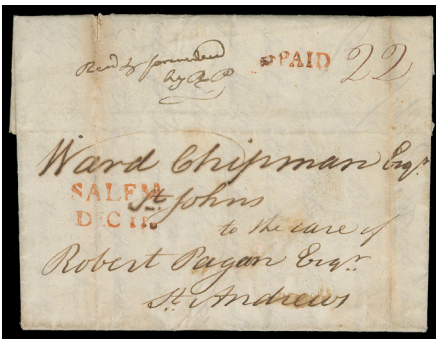 Recd & forwarded
by R P
PAID 22
Ward Chipman Esqr.
SALEM
St Johns
DEC 11.
to the care of
Robert Pagan Esqr.
St Andrews